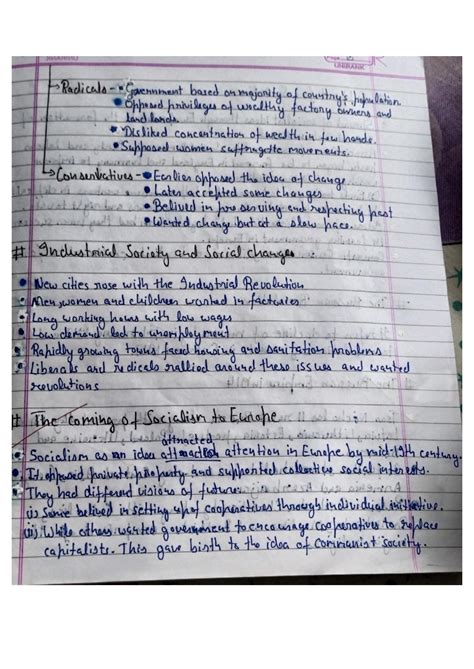 UNIRANK
→ Radicals - • Government based on majority of country's population
• Opposed privileges of wealthy factory owners and
land lords.
• Disliked concentration of wealth in few hands.
• Supposed women suffragette movements.
→ Conservatives - • Earlier opposed the idea of change
• Later accepted some changes
• Belived in preserving and respecting past
• Wanted change but at a slow pace.
# Industrial Society and Social changes
• New cities rose with the Industrial Revolution
• Men, women and children worked in factories
• Long working hours with low wages
• Low demand led to unemployment
• Rapidly growing towns faced housing and sanitation problems
• Liberals and radicals rallied around these issues and wanted
revolutions
# The coming of Socialism to Europe
attracted
• Socialism as an idea attention in Europe by mid-19th century.
• It opposed private property and supported collective social interests.
• They had different visions of future:
(i) Some belived in setting up of cooperatives through individual initiative.
(ii) While others wanted government to encourage cooperatives to replace
capitalists. This gave birth to the idea of Communist society.